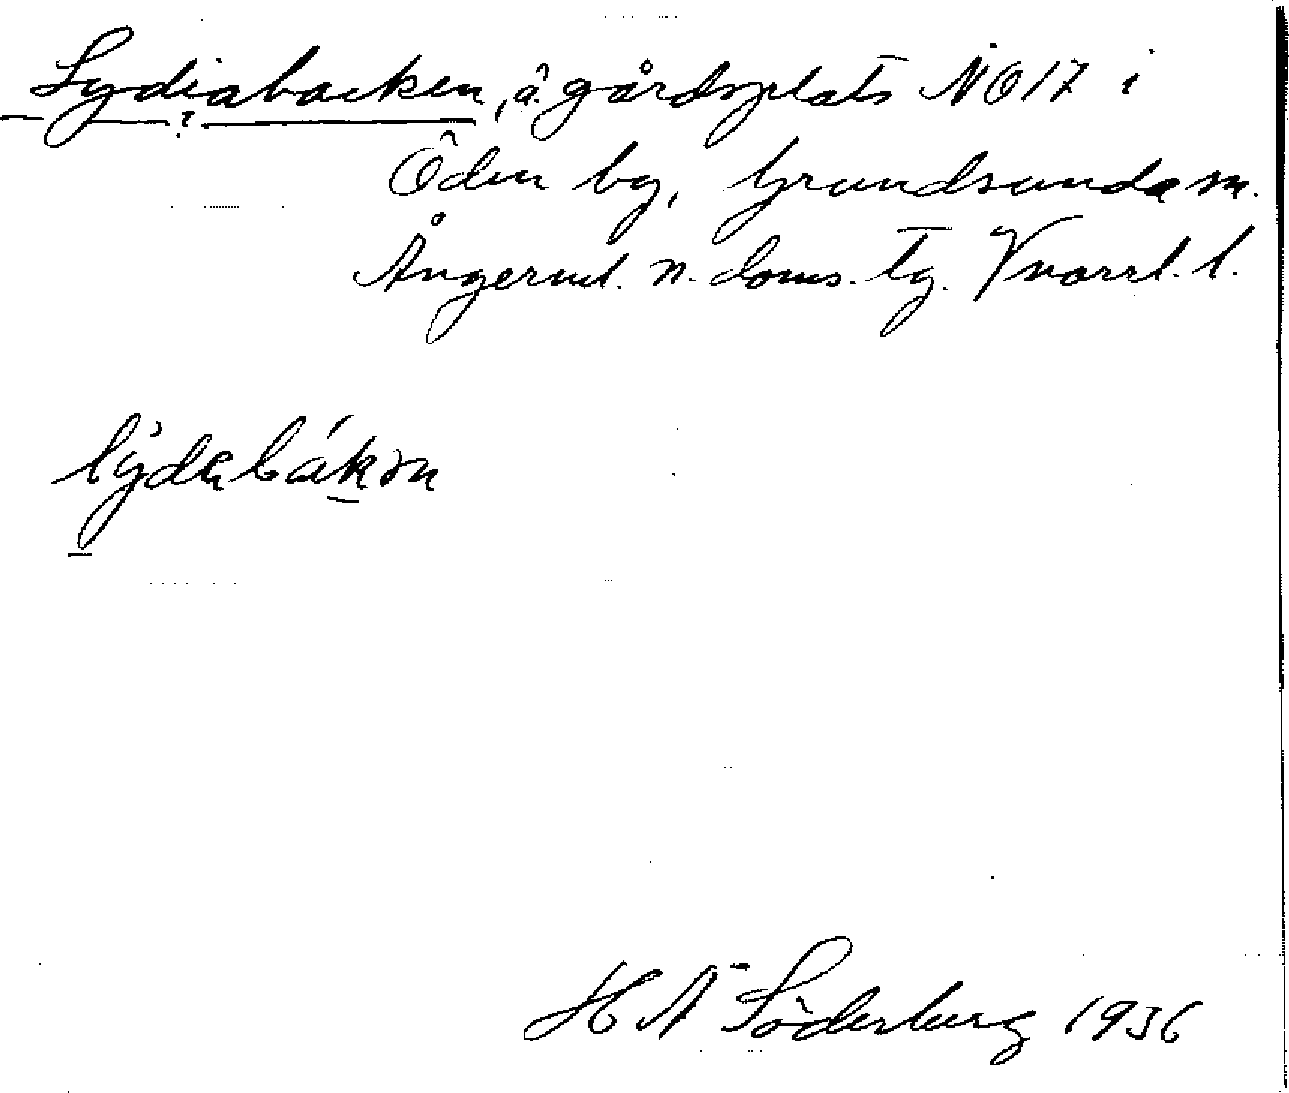 Lydiabacken, å. gårdsplats NO17 i
Öden by, Grundsunda sn.
Ångerml. n. doms. tg. Vnorrl. l.
lýdabákən
H A Söderberg 1936